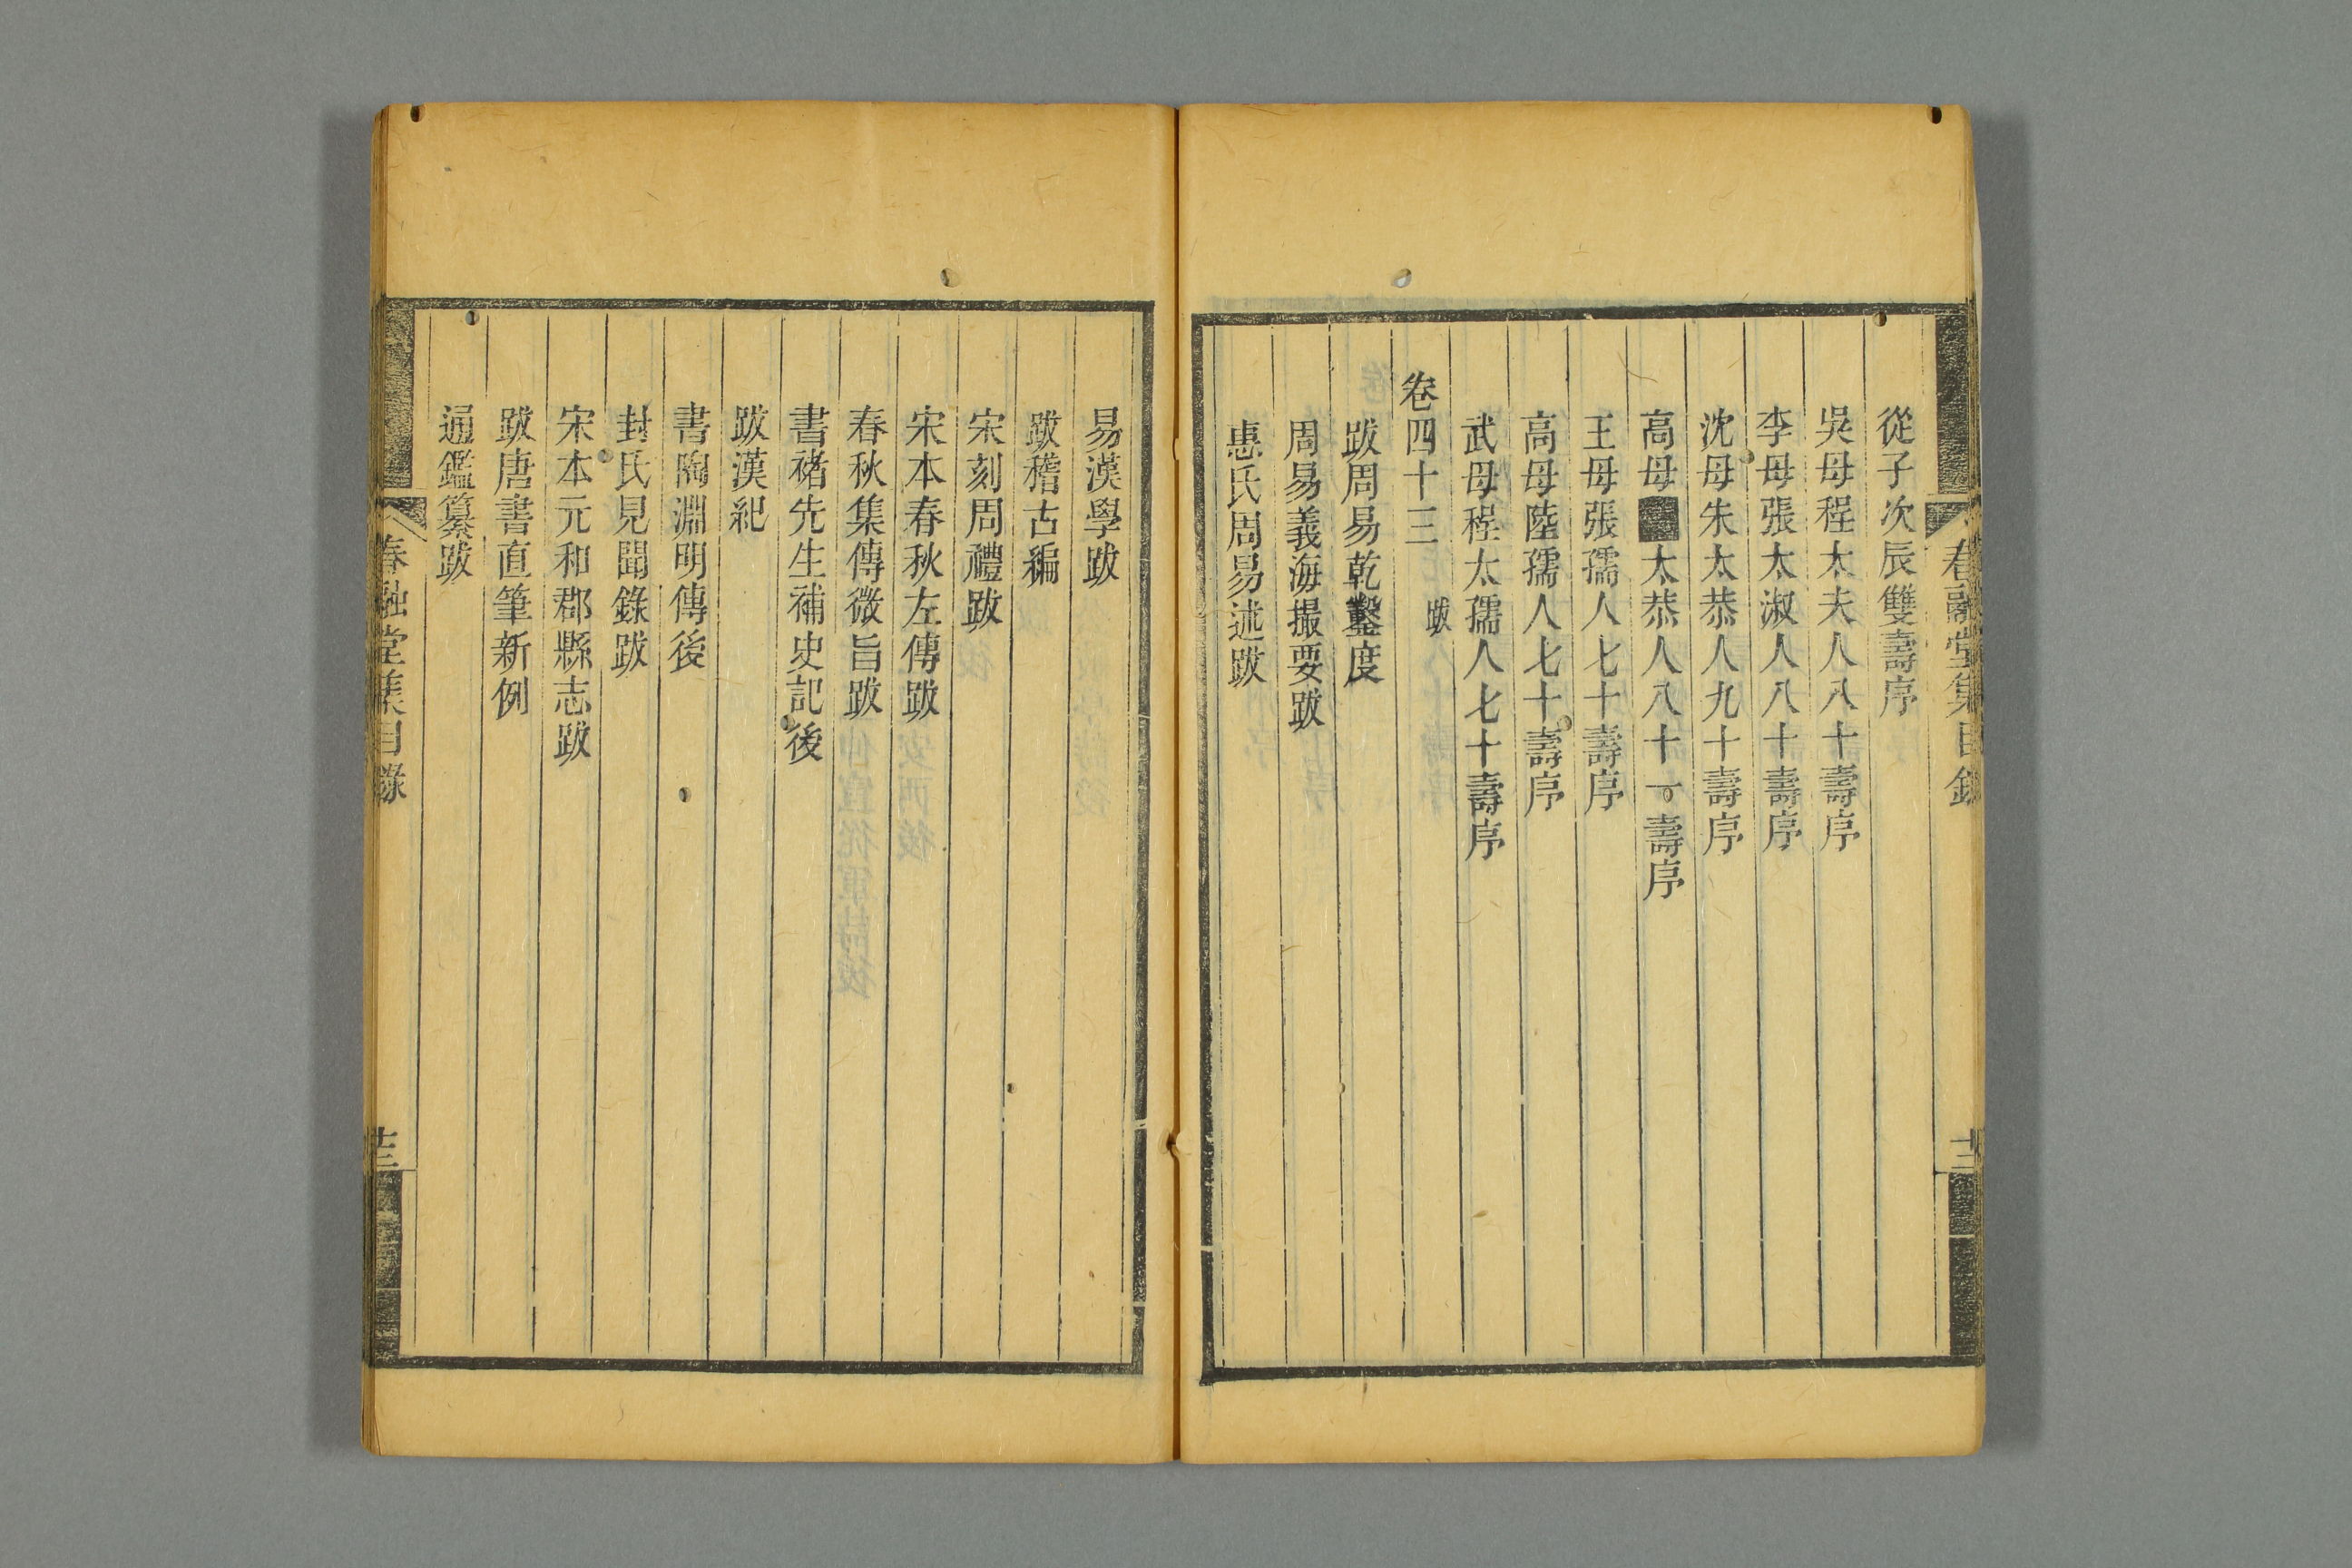 春融堂集目錄
從子次辰雙壽序
吳母程太夫人八十壽序
李母張太淑人八十壽序
沈母朱太恭人九十壽序
高母■太恭人八十一壽序
王母張孺人七十壽序
高母陸孺人七十壽序
武母程太孺人七十壽序
卷四十三 跋
跋周易乾鑿度
周易義海撮要跋
惠氏周易述跋
易漢學跋
跋稽古編
宋刻周禮跋
宋本春秋左傳跋
春秋集傳微旨跋
書褚先生補史記後
跋漢紀
書陶淵明傳後
封氏見聞錄跋
宋本元和郡縣志跋
跋唐書直筆新例
通鑑纂跋
春融堂集目錄